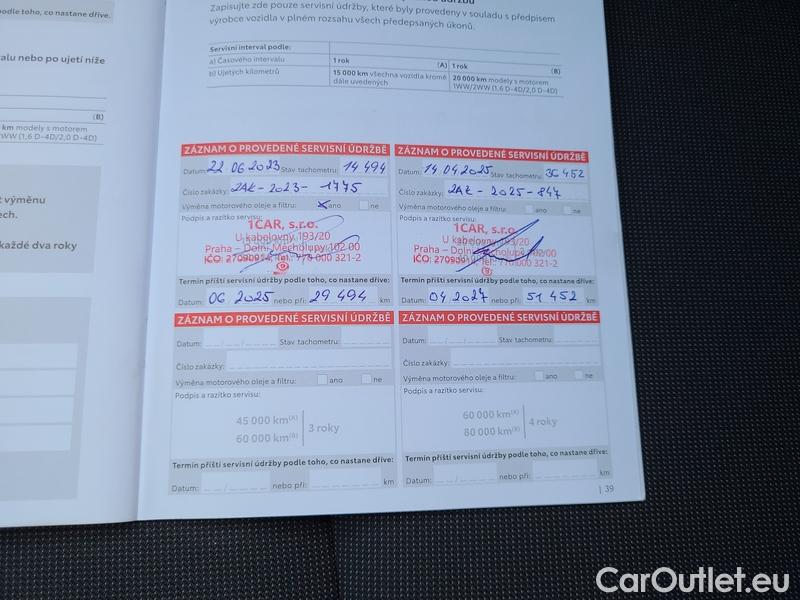 Zapisujte zde pouze servisní údržby, které byly provedeny v souladu s předpisem
výrobce vozidla v plném rozsahu všech předepsaných úkonů.
podle toho, co nastane dříve.
alu nebo po ujetí níže
(B)
km modely s motorem
WW (1,6 D-4D/2,0 D-4D)
t výměnu
ech.
každé dva roky
Servisní interval podle:
a) Časového intervalu 1 rok (A) 1 rok (B)
b) Ujetých kilometrů 15 000 km všechna vozidla kromě dále uvedených 20 000 km modely s motorem 1WW/2WW (1,6 D-4D/2,0 D-4D)
ZÁZNAM O PROVEDENÉ SERVISNÍ ÚDRŽBĚ
Datum: 22 06 2023 Stav tachometru: 14 494
Číslo zakázky: 2AK - 2023 - 1775
Výměna motorového oleje a filtru: x ano ne
Podpis a razítko servisu:
1CAR, s.r.o.
U kabelovny 193/20
Praha – Dolní Měcholupy 102 00
IČO: 27090914, Tel.: 778 000 321-2
Termín příští servisní údržby podle toho, co nastane dříve:
Datum: 06 2025 nebo při: 29 494 km
ZÁZNAM O PROVEDENÉ SERVISNÍ ÚDRŽBĚ
Datum: 14 04 2025 Stav tachometru: 36 452
Číslo zakázky: 2AK - 2025 - 847
Výměna motorového oleje a filtru: ano ne
Podpis a razítko servisu:
1CAR, s.r.o.
U kabelovny 193/20
Praha – Dolní Měcholupy
Termín příští servisní údržby podle toho, co nastane dříve:
Datum: 04 2027 nebo při: 51 452 km
ZÁZNAM O PROVEDENÉ SERVISNÍ ÚDRŽBĚ
Datum: Stav tachometru:
Číslo zakázky:
Výměna motorového oleje a filtru: ano ne
Podpis a razítko servisu:
45 000 km(A)
60 000 km(B)
3 roky
Termín příští servisní údržby podle toho, co nastane dříve:
Datum: nebo při: km
ZÁZNAM O PROVEDENÉ SERVISNÍ ÚDRŽBĚ
Datum: Stav tachometru:
Číslo zakázky:
Výměna motorového oleje a filtru: ano ne
Podpis a razítko servisu:
60 000 km(A)
80 000 km(B)
4 roky
Termín příští servisní údržby podle toho, co nastane dříve:
Datum: nebo při: km
39
CarOutlet.eu